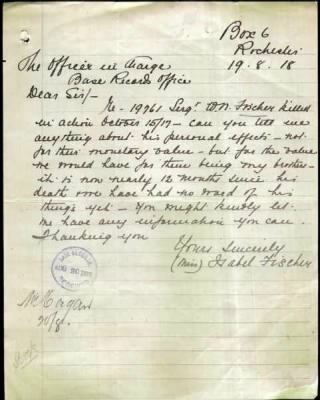 Box 6
Rochester
19.8.18
The Officer in Charge
Base Records Office
Dear Sir/-
Re - 19761 Sergt W.N. Fischer killed
in action October 15/17 - can you tell me
anything about his personal effects - not
for their monetary value - but for the value
we would have for them being my brother -
it is now nearly 12 months since his
death & we have had no word of his
things yet - You might kindly let
me have any information you can.
Thanking you
Yours Sincerely
(Miss) Isabel Fischer
AUG 20 1918
20/8.